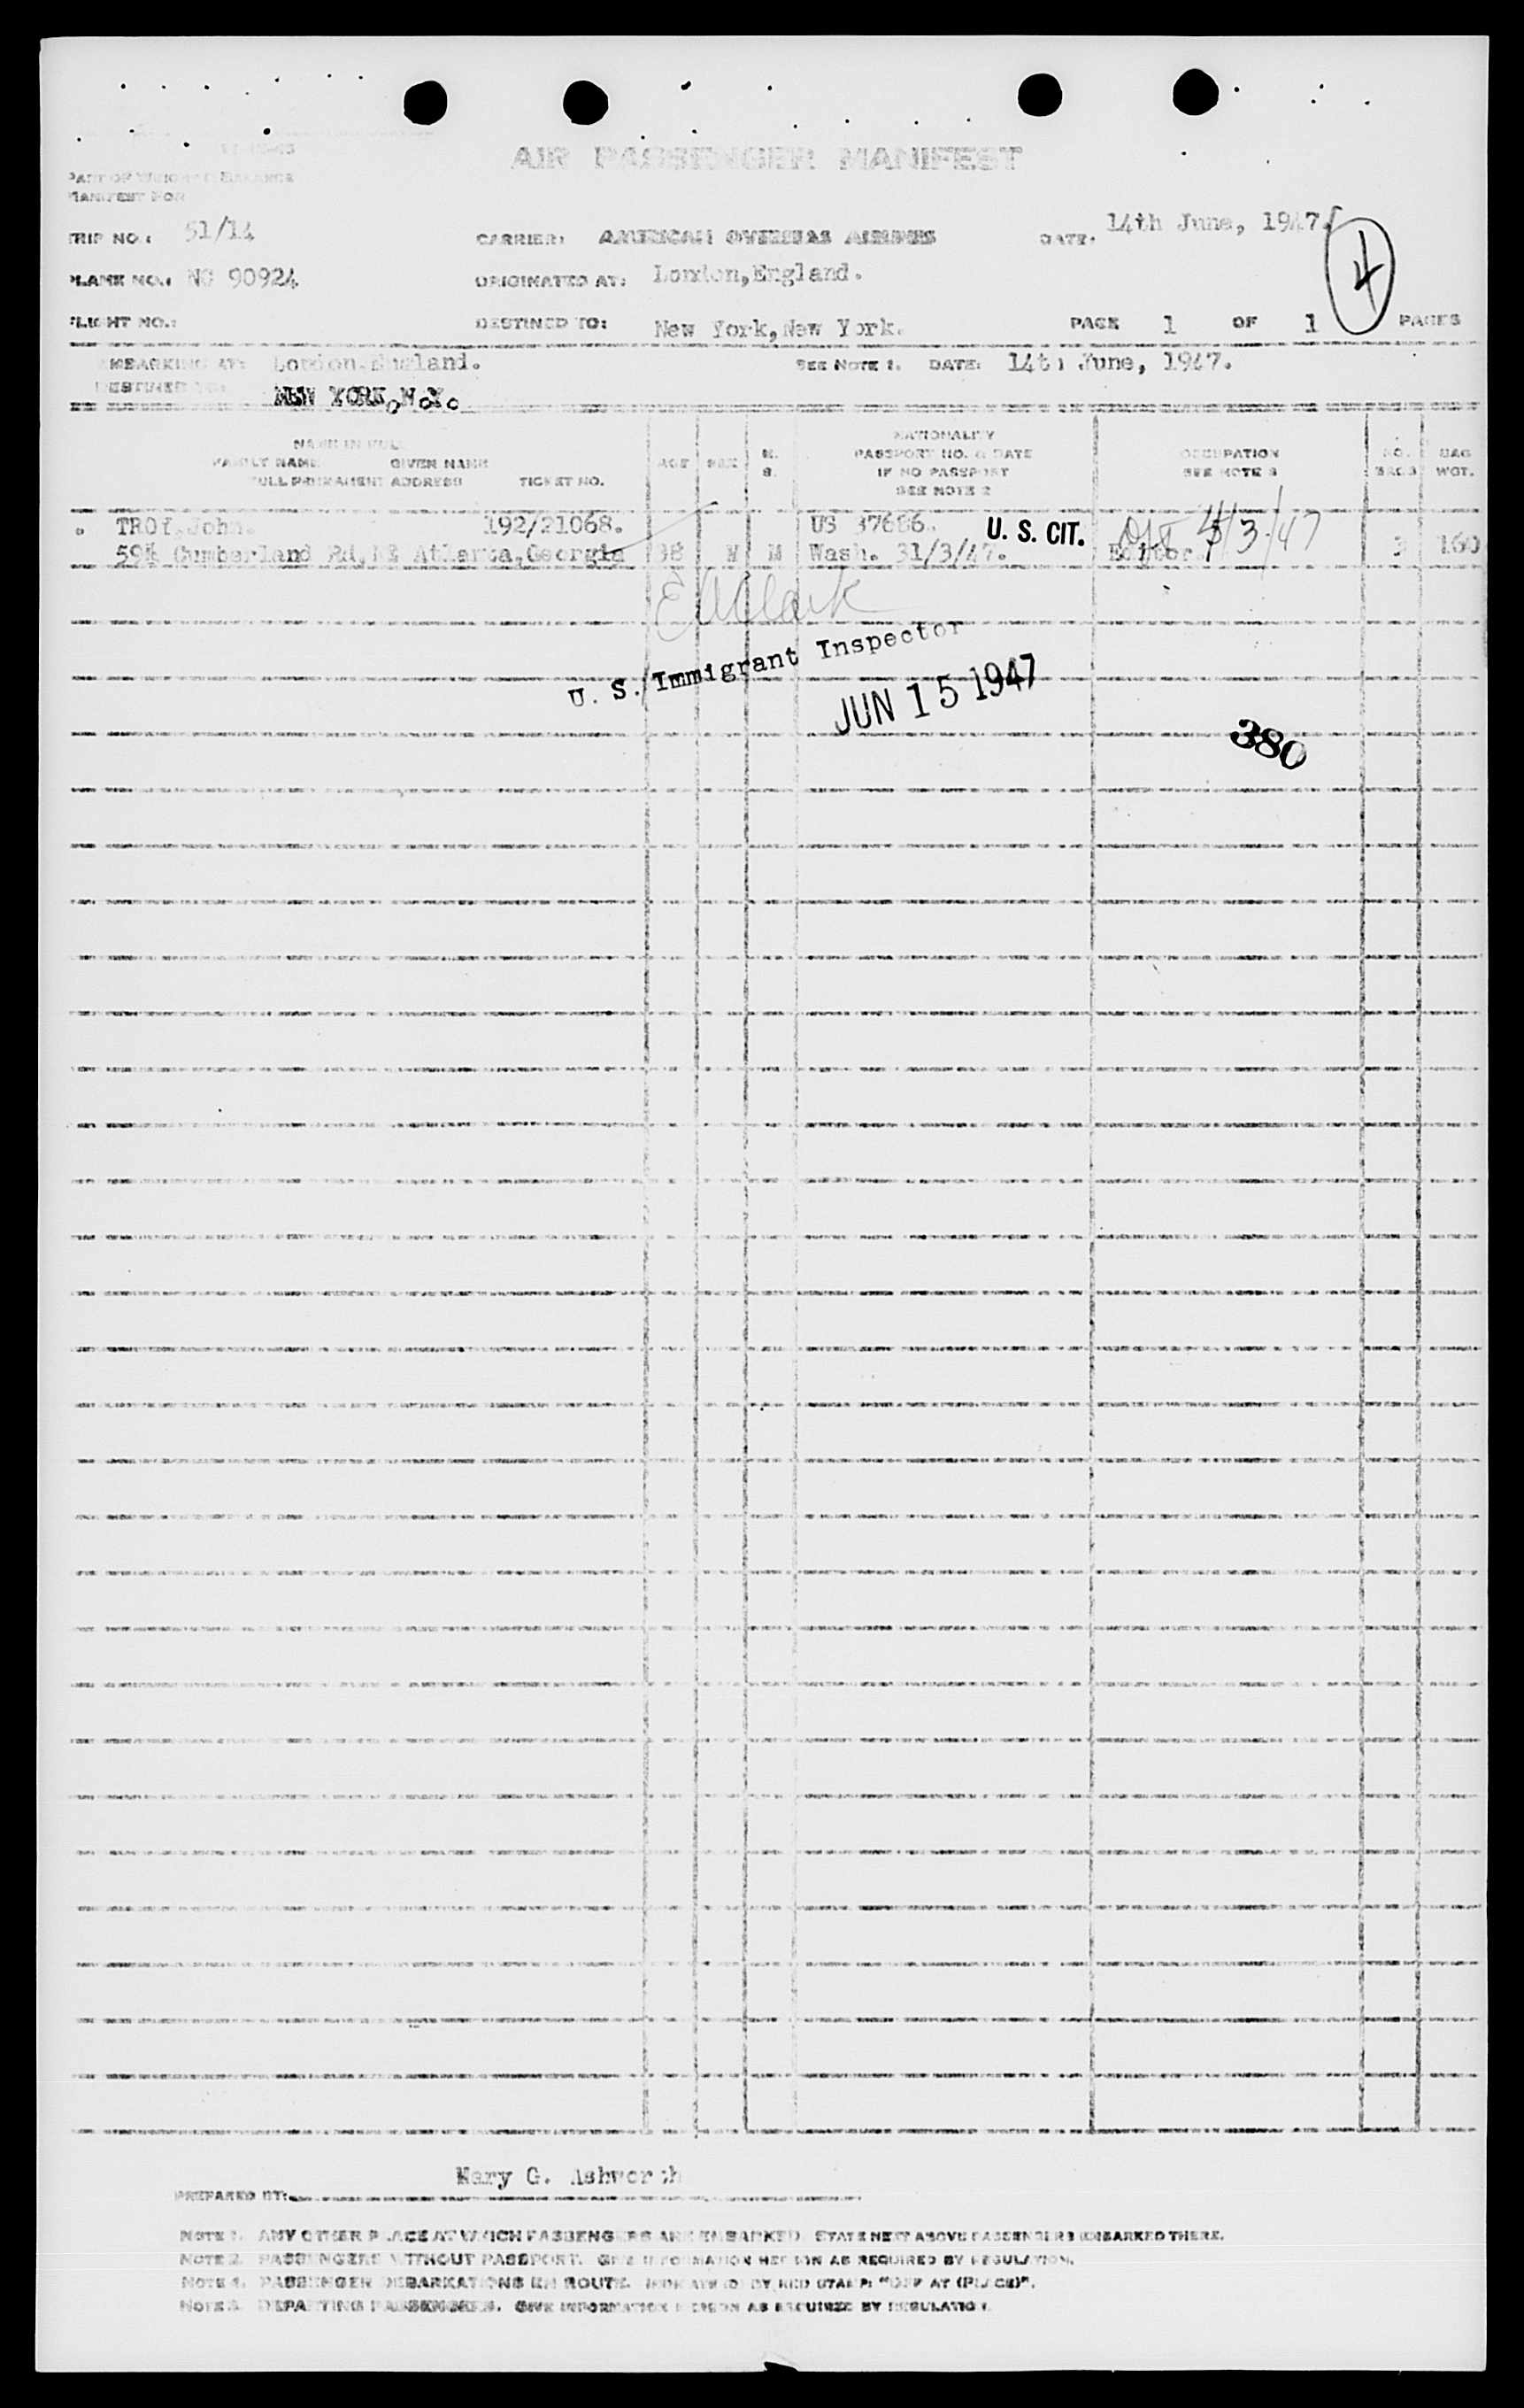 AIR PASSENGER MANIFEST
PART OF WEIGHT BALANCE
MANIFEST FOR
TRIP NO.: 51/14 CARRIER: AMERICAN OVERSEAS AIRLINES DATE: 14th June, 1947.
4
PLANE NO.: NC 90924 ORIGINATED AT: London,England.
FLIGHT NO.: DESTINED TO: New York,New York. PAGE 1 OF 1 PAGES
EMBARKING AT: London,England. SEE NOTE 1. DATE: 14th June, 1947.
DESTINED TO: NEW YORK,N.Y.
NAME IN FULL
FAMILY NAME GIVEN NAME
FULL PERMANENT ADDRESS TICKET NO.
AGE SEX M. S.
NATIONALITY
PASSPORT NO. & DATE
IF NO PASSPORT
SEE NOTE 2
OCCUPATION
SEE NOTE 3
NO. BAGS
BAG WGT.
John. 192/21068. US U. S. CIT. 3/47
Cumberland Rd,NE Atlanta,Georgia M Wash. 31/3/47. Editor. 3 160
U. S. Immigrant Inspector
JUN 15 1947
380
Mary G. Ashworth
PREPARED BY:
NOTE 1. ANY OTHER PLACE AT WHICH PASSENGERS ARE EMBARKED. STATE NEXT ABOVE PASSENGERS EMBARKED THERE.
NOTE 2. PASSENGERS WITHOUT PASSPORT. GIVE INFORMATION HEREON AS REQUIRED BY REGULATION.
NOTE 4. PASSENGER DEBARKATIONS EN ROUTE. INDICATED BY RED STAMP: "OFF AT (PLACE)".
NOTE 3. DEPARTING PASSENGERS. GIVE INFORMATION HEREON AS REQUIRED BY REGULATION.